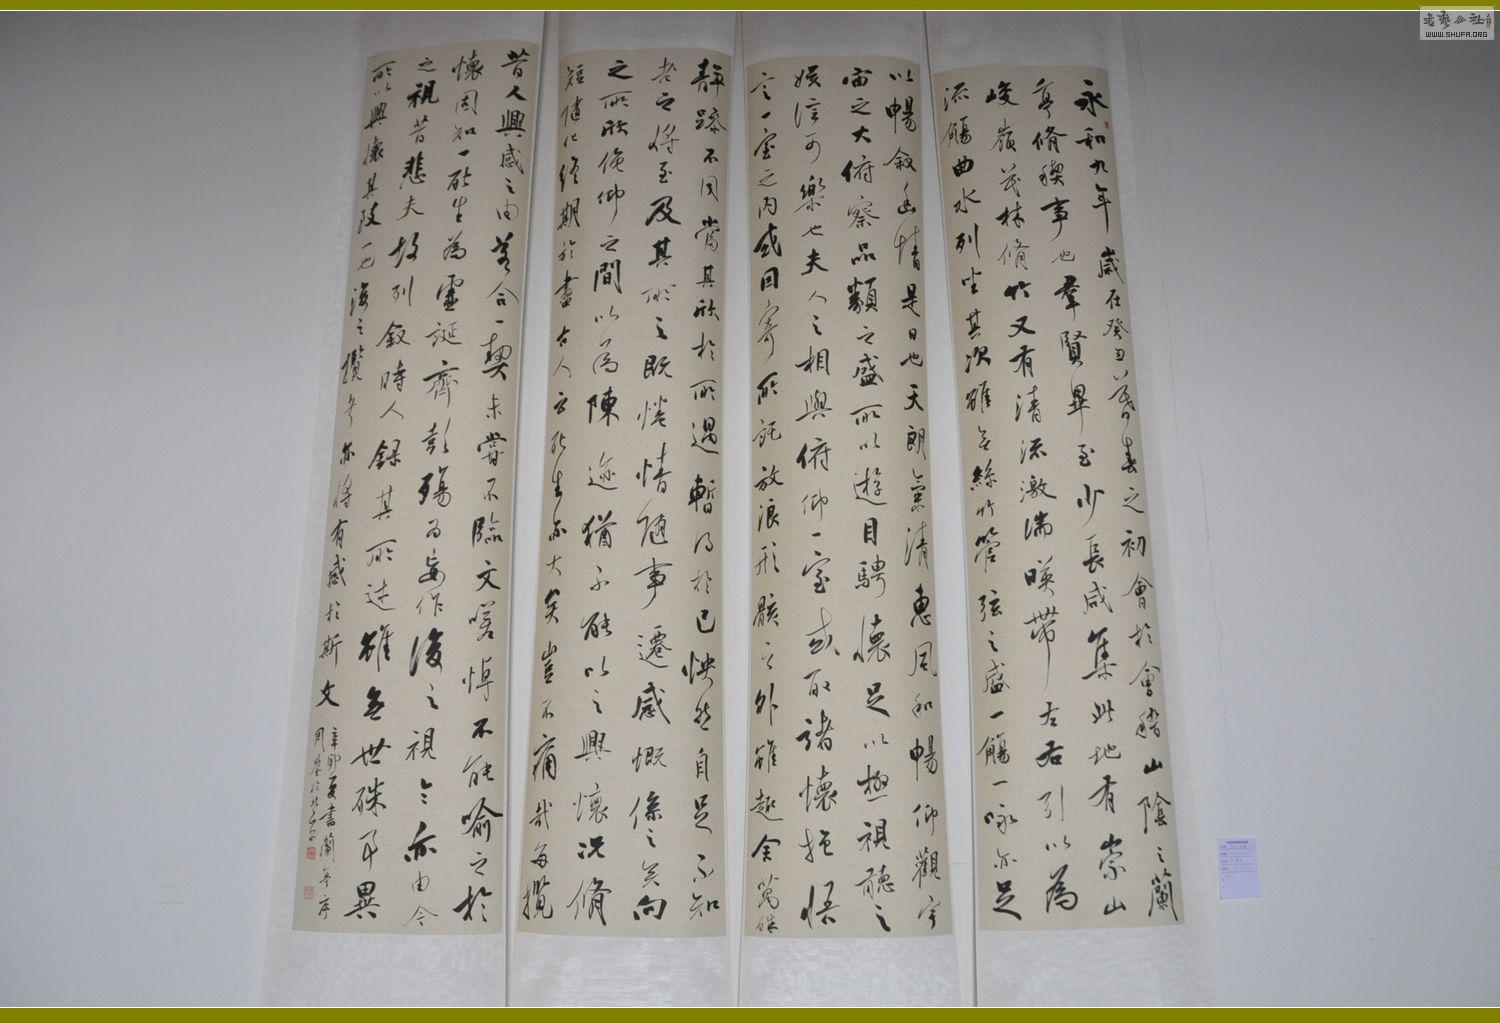 永和九年歲在癸丑暮春之初會於會稽山陰之蘭
亭脩稧事也群賢畢至少長咸集此地有崇山
峻嶺茂林脩竹又有清流激湍暎帶左右引以為
流觴曲水列坐其次雖無絲竹管弦之盛一觴一詠亦足
以暢敘幽情是日也天朗氣清惠風和暢仰觀宇
宙之大俯察品類之盛所以遊目騁懷足以極視聽之
娛信可樂也夫人之相與俯仰一室或取諸懷抱悟
言一室之內或因寄所託放浪形骸之外雖趣舍萬殊
靜躁不同當其欣於所遇暫得於己怏然自足不知
老之將至及其所之既惓情隨事遷感慨係之矣向
之所欣俛仰之間以為陳迹猶不能以之興懷況脩
短隨化終期於盡古人云死生亦大矣豈不痛哉每攬
昔人興感之由若合一契未嘗不臨文嗟悼不能喻之於
懷固知一死生為虛誕齊彭殤為妄作後之視今亦由今
之視昔悲夫故列敘時人錄其所述雖世殊事異
所以興懷其致一也後之攬者亦將有感於斯文
辛卯夏書蘭亭序
WWW.SHUFA.ORG